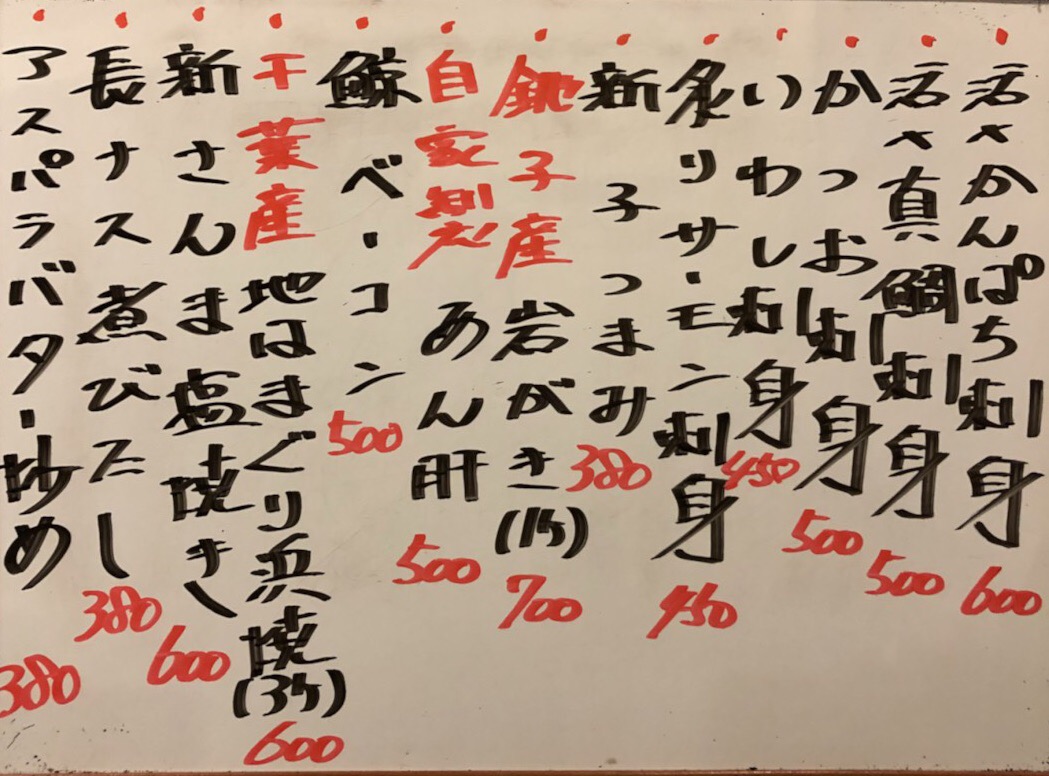 活〆かんぱち刺身 600
活〆真鯛刺身 500
かつお刺身 500
いわし刺身 450
炙りサーモン刺身 450
新子つまみ 380
銚子産岩がき(1ケ) 700
自家製あん肝 500
鯨ベーコン 500
千葉産地はまぐり浜焼(3ケ) 600
新さんま塩焼き 600
長ナス煮びたし 380
アスパラバター炒め 380